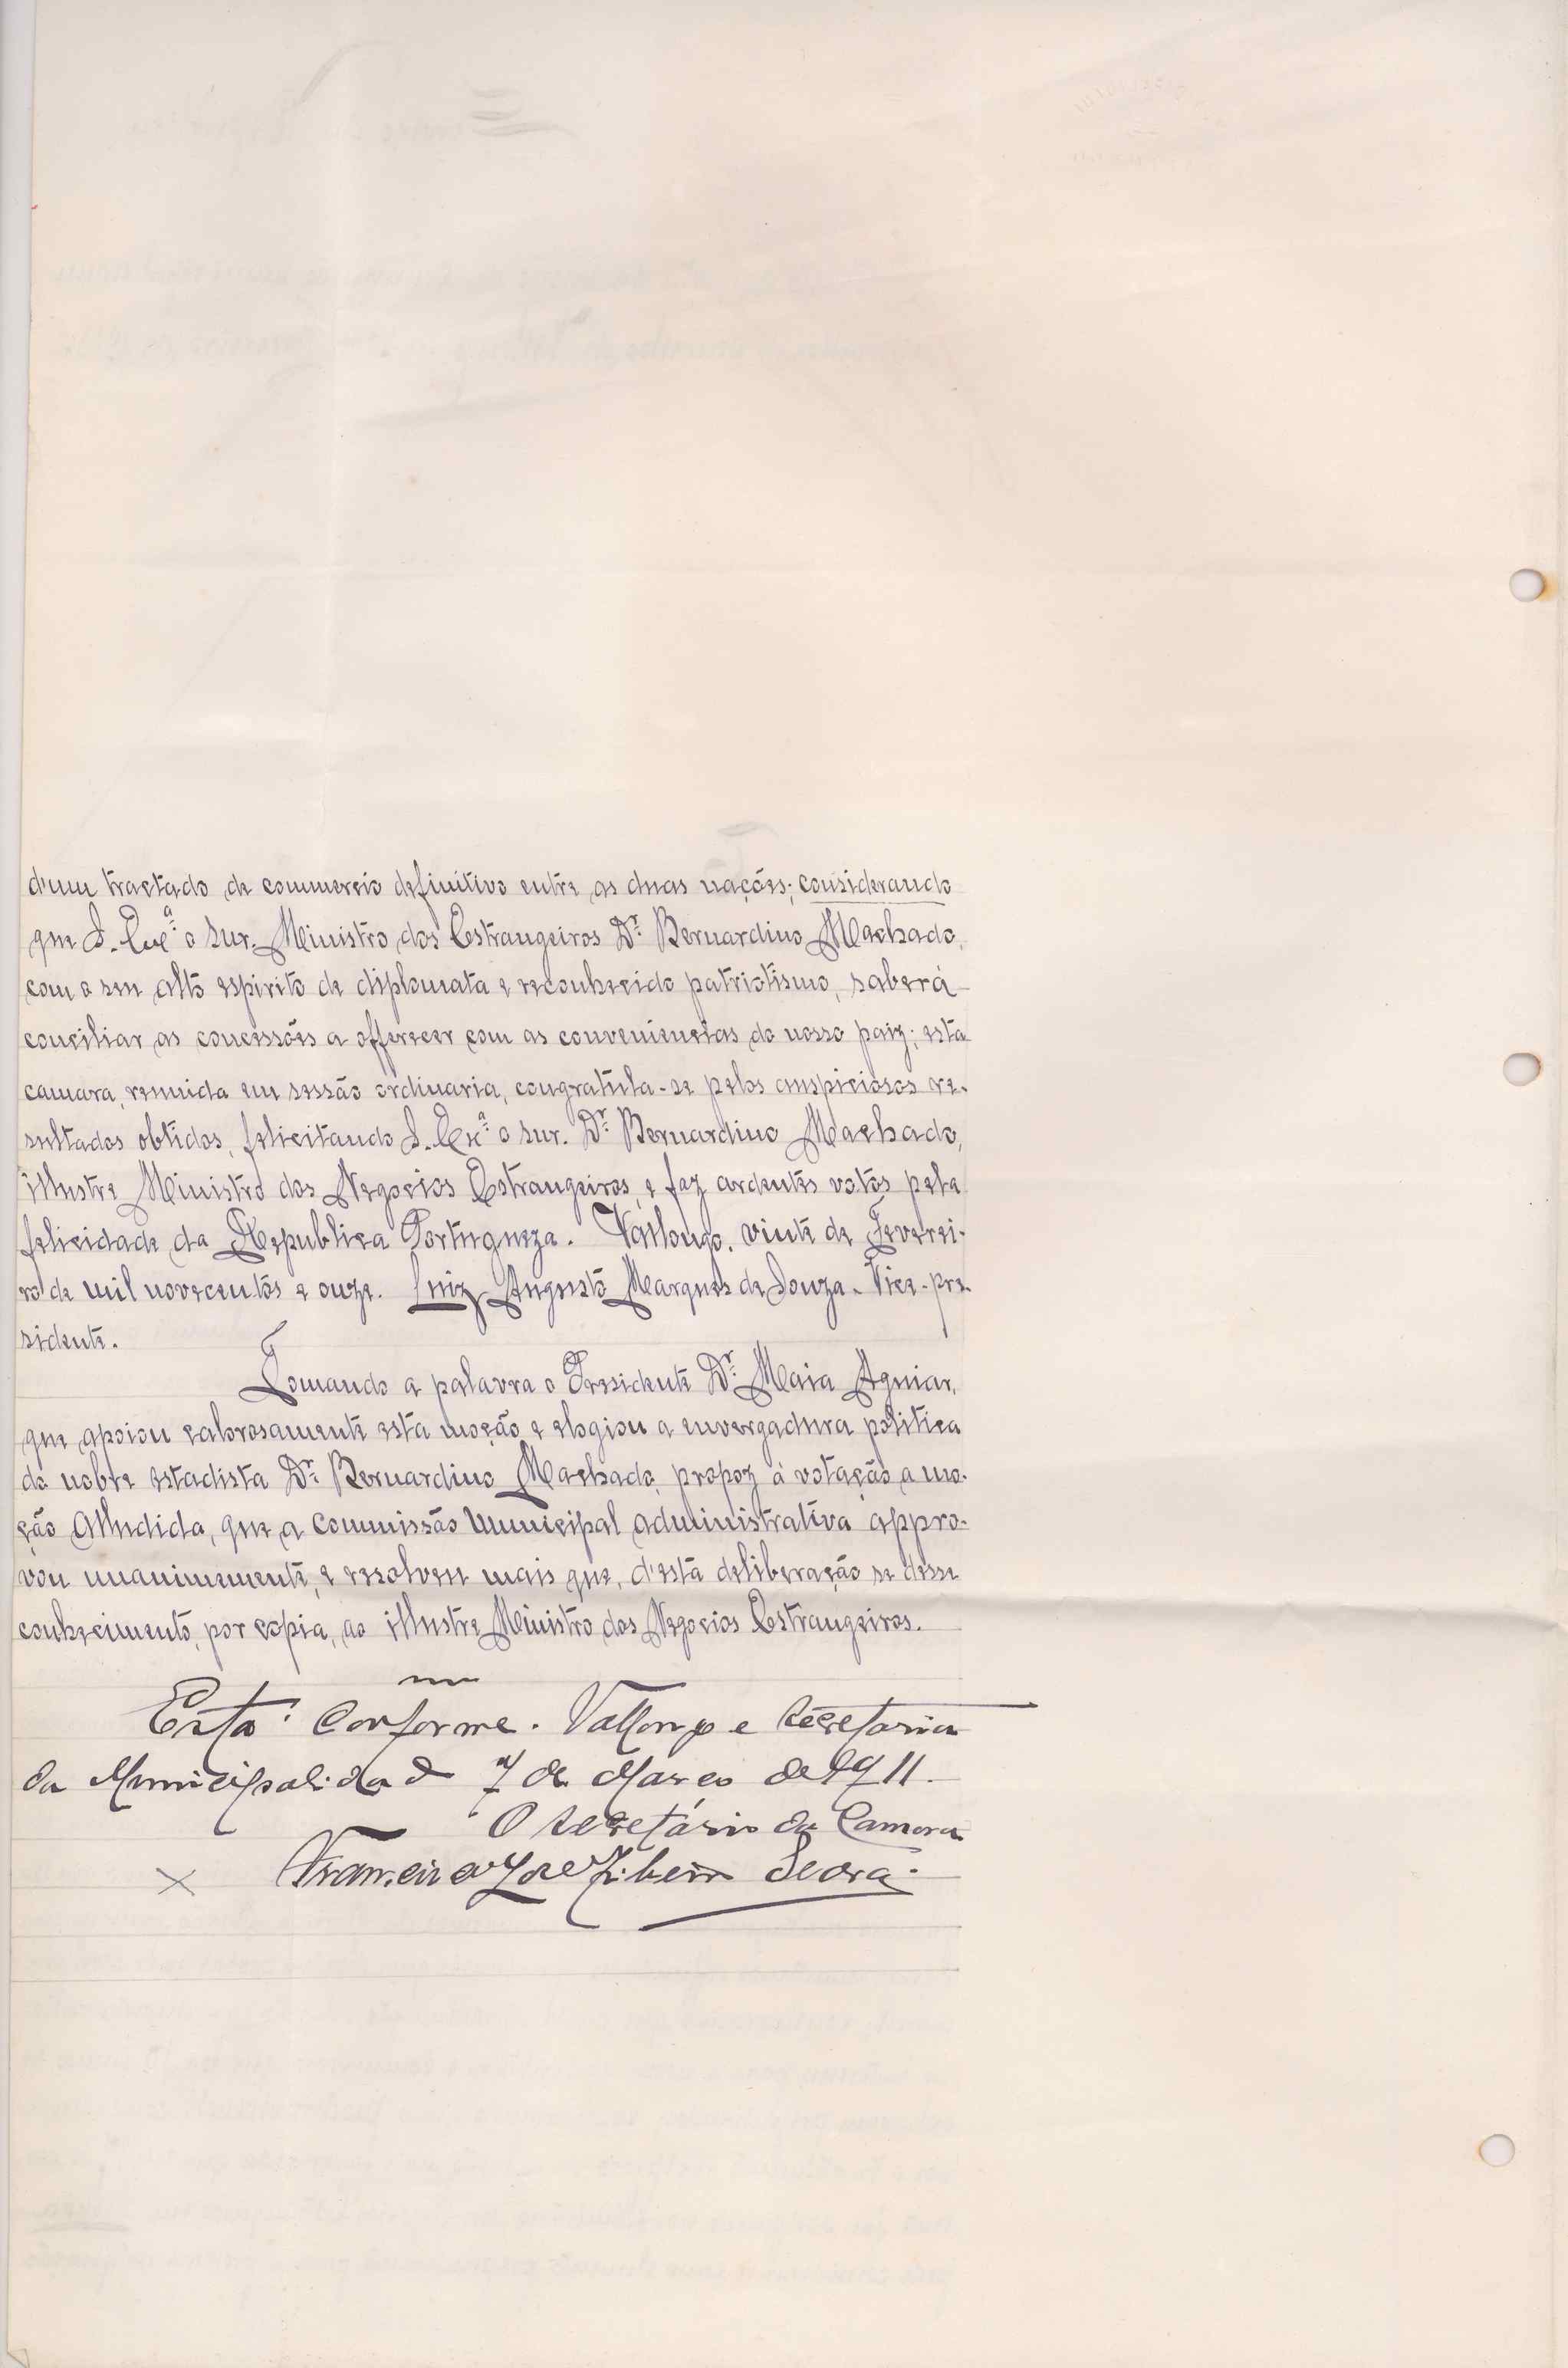 d'um tractado de commercio definitivo entre as duas nações; considerando
que S. Ex.ª o snr. Ministro dos Estrangeiros Dr. Bernardino Machado,
com o seu alto espirito de diplomata e reconhecido patriotismo, saberá
conciliar as concessões a offerecer com as conveniencias do nosso paiz; esta
camara, reunida em sessão ordinaria, congratula-se pelos auspiciosos re-
sultados obtidos, felicitando S. Ex.ª o snr. Dr. Bernardino Machado,
illustre Ministro dos Negocios Estrangeiros, e faz ardentes votos pela
felicidade da Republica Portugueza. Vallongo, vinte de Feverei-
ro de mil novecentos e onze. Luiz Augusto Marques de Souza - Vice-pre-
sidente.
Tomando a palavra o Presidente Dr. Maia Aguiar,
que apoiou calorosamente esta moção e elogiou a envergadura politica
do nobre estadista Dr. Bernardino Machado, propoz á votação a mo-
ção alludida, que a Commissão Municipal administrativa appro-
vou unanimemente, e resolveu mais que, d'esta deliberação se desse
conhecimento, por copia, ao illustre Ministro dos Negocios Estrangeiros.
Está conforme. Vallongo e Secretaria
da Municipalidade 7 de Março de 1911.
O Secretário da Camara
Francisco José Ribeiro Seára.